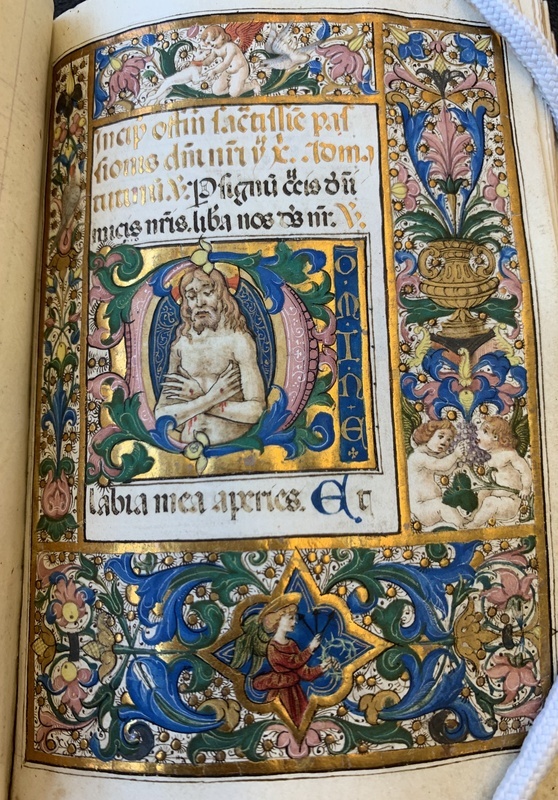 Incip offm̄ sac̄tissīe pas
sionis dn̄i nr̄i y x. Ad ma
tutinū. V. P signū c̄cis d ini
micis nr̄is. liba nos ds nr̄. V.
DOMINE
labia mea aperies. Et